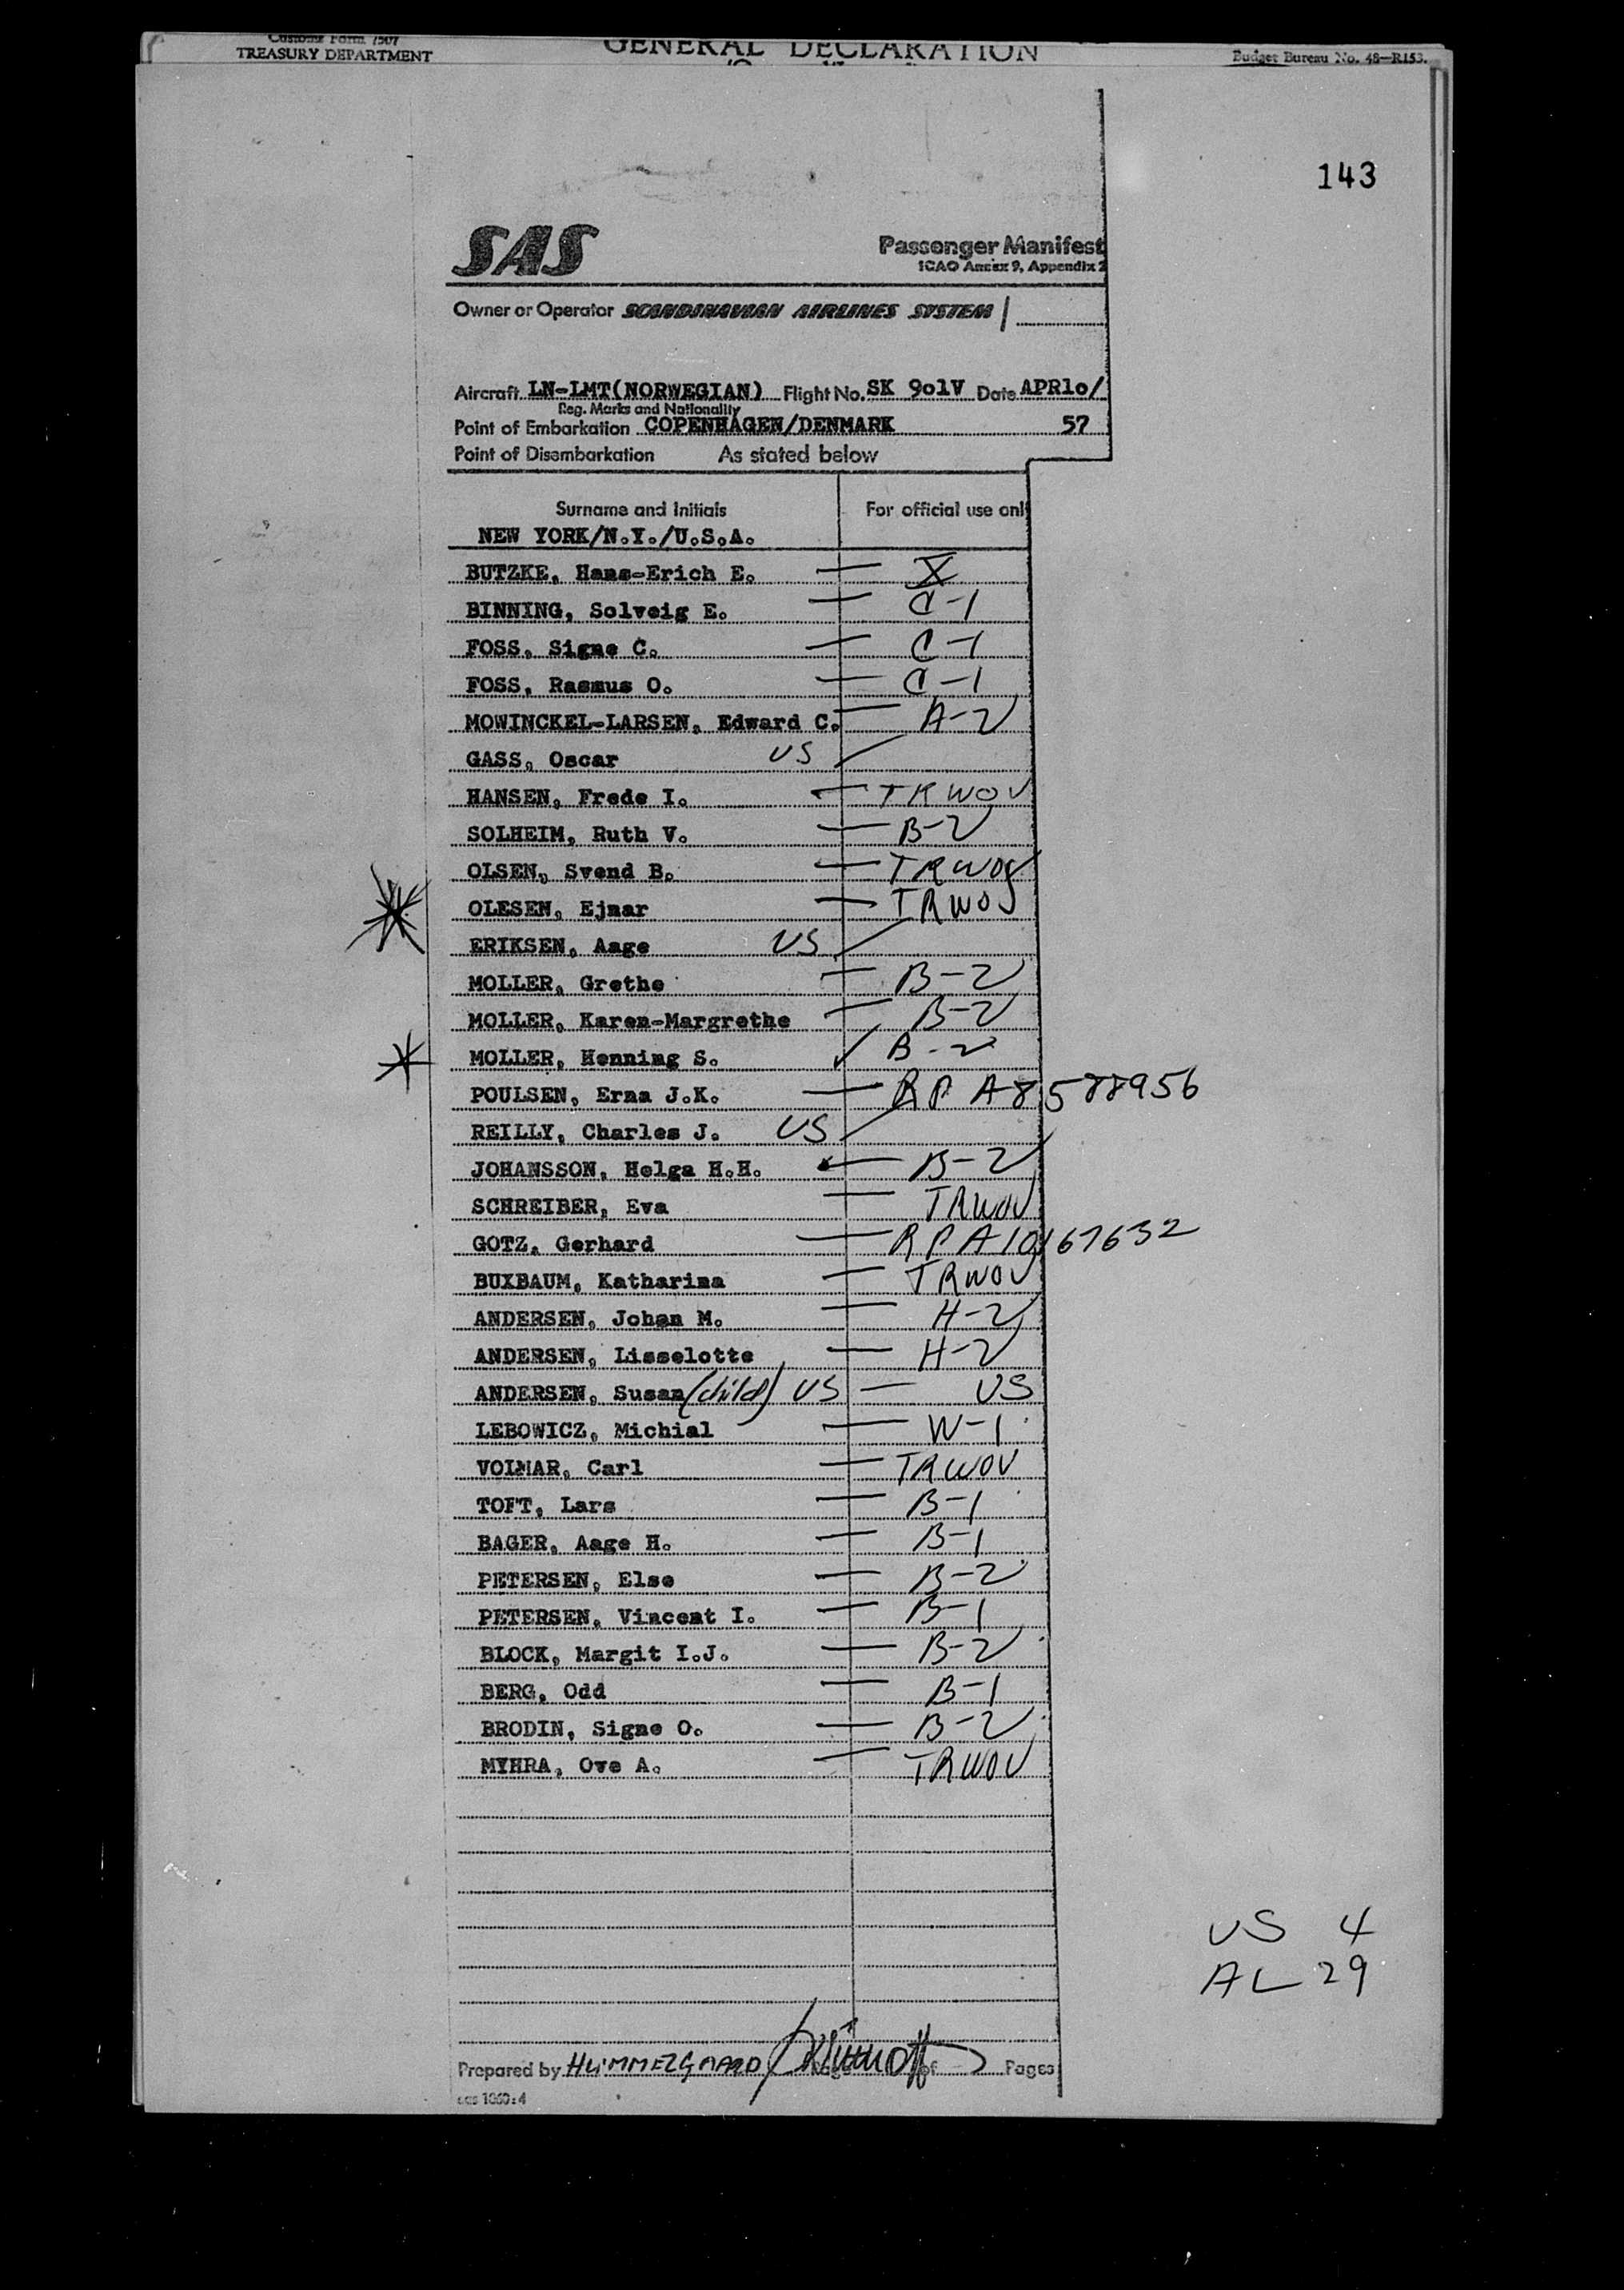 Customs Form 7507
TREASURY DEPARTMENT
GENERAL DECLARATION
Budget Bureau No. 48—R153.
143
SAS
Passenger Manifest
ICAO Annex 9, Appendix 2
Owner or Operator SCANDINAVIAN AIRLINES SYSTEM
Aircraft LN-LMT(NORWEGIAN) Flight No. SK 9o1V Date APR1o/
Reg. Marks and Nationality
Point of Embarkation COPENHAGEN/DENMARK 57
Point of Disembarkation As stated below
Surname and Initials For official use onl
NEW YORK/N.Y./U.S.A.
BUTZKE, Hans-Erich E. — X
BINNING, Solveig E. — C-1
FOSS, Signe C. — C-1
FOSS, Rasmus O. — C-1
MOWINCKEL-LARSEN, Edward C. — A-2
GASS, Oscar US
HANSEN, Frede I. — TRWOV
SOLHEIM, Ruth V. — B-2
OLSEN, Svend B. — TRWOV
OLESEN, Ejnar — TRWOV
ERIKSEN, Aage US
MOLLER, Grethe — B-2
MOLLER, Karen-Margrethe — B-2
MOLLER, Henning S. ✓ B-2
POULSEN, Erna J.K. — RP A8588956
REILLY, Charles J. US
JOHANSSON, Helga H.H. — B-2
SCHREIBER, Eva — TRWOV
GOTZ, Gerhard — RP A10167632
BUXBAUM, Katharina — TRWOV
ANDERSEN, Johan M. — H-2
ANDERSEN, Lisselotte — H-2
ANDERSEN, Susan (child) US — US
LEBOWICZ, Michial — W-1
VOLMAR, Carl — TRWOV
TOFT, Lars — B-1
BAGER, Aage H. — B-1
PETERSEN, Else — B-2
PETERSEN, Vincent I. — B-1
BLOCK, Margit I.J. — B-2
BERG, Odd — B-1
BRODIN, Signe O. — B-2
MYHRA, Ove A. — TRWOV
US 4
AL 29
Prepared by HUMMELGAARD of Pages
sas 1060:4